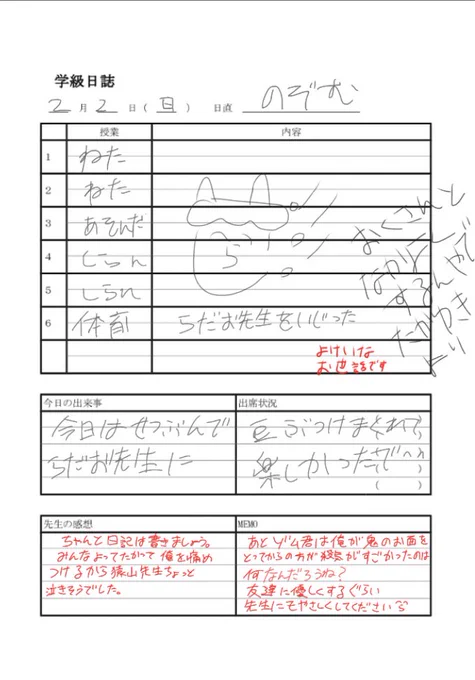 学級日誌
2月2日(日) 日直 のぞむ
授業 内容
1 ねた
2 ねた
3 あそんだ
4 しらん
5 しらん
6 体育 らだお先生をいじった
ら
おくさんと
なかよく
するんやで
たかゆき
より
よけいな
お世話です
今日の出来事
今日はせつぶんで
らだお先生に
出席状況
豆ぶつけまくれて
楽しかったで
( )
先生の感想
ちゃんと日記は書きましょう。
みんなよってたかって俺を痛め
つけるから猿山先生ちょっと
泣きそうでした。
MEMO
あとゾム君は俺が鬼のお面を
とってからの方が殺気がすごかったのは
何なんだろうね?
友達に優しくするぐらい
先生にもやさしくしてください